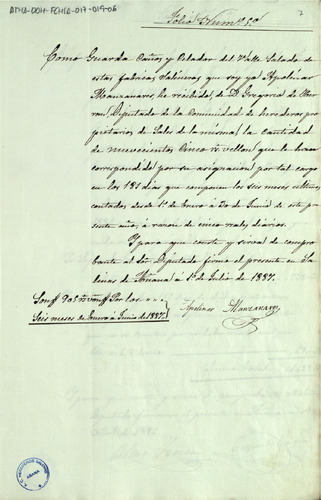 ATHA-DOH-FCHSA-017-019-06
7
Folio Num.º 5.º
Como Guarda Caños y Celador del Valle Salado de
estas fabricas Salineras que soy yo Apolinar
Manzanares, he recibido, de D. Gregorio de Herran,
Diputado de la Comunidad de herederos pro-
pietarios de Sales de la misma, la cantidad
de nuevecientos cinco rs vellon que le han
correspondido por su asignacion por tal cargo
en los 181 dias que componen los seis meses ultimos
contados desde 1.º de Enero á 30 de Junio de este
presente año, á razon de cinco reales diarios.
Y para que conste y sirva de compro-
bante al Sor. Diputado firmo el presente en Sa-
linas de Añana á 1.º de Julio de 1887.
Son 905 rs von Por los
Seis meses de Enero á Junio de 1887.
Apolinar Manzanares
AÑANA